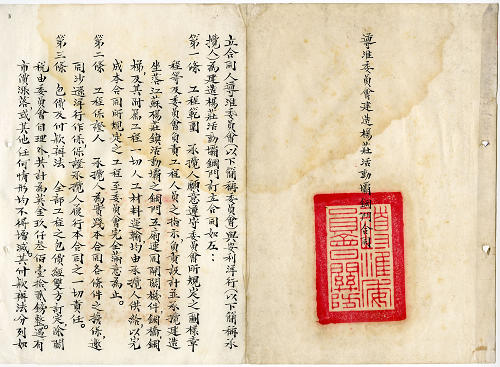 導淮委員會建造楊莊活動壩鋼門合同
立合同人導淮委員會(以下簡稱委員會)與安利洋行(以下簡稱承
攬人)為建造楊莊活動壩鋼門訂立合同如左:
第一條 工程範圍 承攬人願意遵守委員會所規定之圖樣章
程等及委員會負責工程人員之指示負責設計並承攬建造
坐落江蘇楊莊鎮活動壩之鋼門五扇連同開關機件鋼橋鋼
樑及其附屬工程一切人工材料運輸均由承攬人供給以完
成本合同所規定之工程至委員會完全滿意為止。
第二條 工程保證人 承攬人為實踐本合同各條件之擔保邀
同沙遜洋行作保保證承攬人履行本合同之一切責任。
第三條 包價及付款辦法 全部工程之包價經雙方訂定除關
稅由委員會自理外共計為英金玖仟叁佰壹拾貳鎊整。遇有
市價漲落或其他任何情形均不得增減。其付款辦法分列如